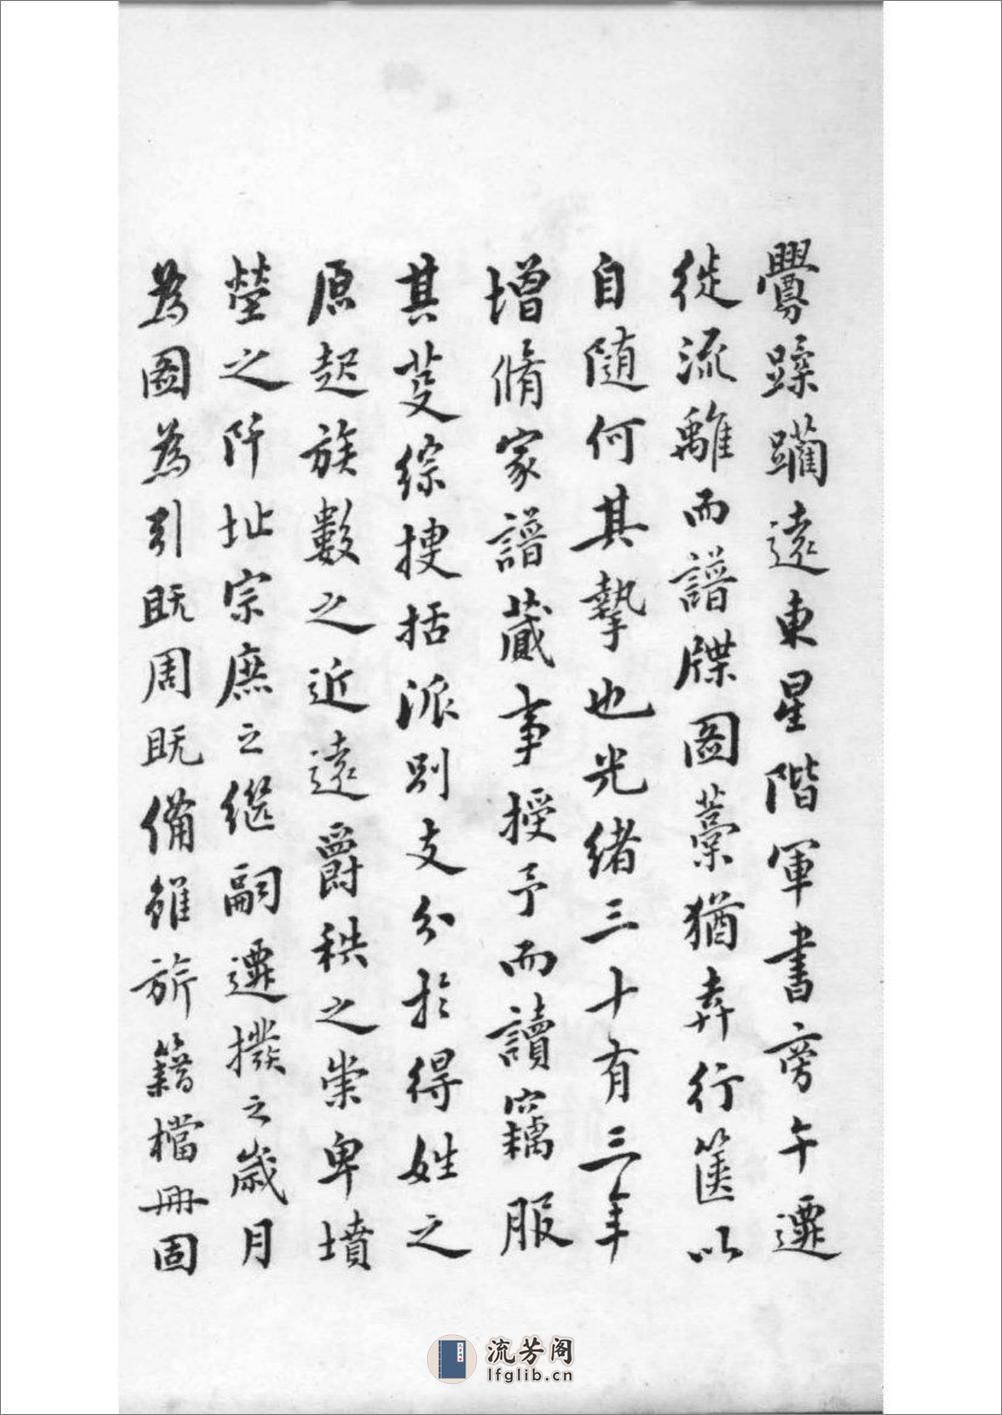 釁蹂躪遠東星階軍書旁午遷
徙流離而譜牒圖藁猶弆行篋以
自随何其摯也光绪三十有三年
增脩家譜蕆事授予而讀竊服
其蒐綜㨗括派别支分於得姓之
原起族數之近遠爵秩之崇卑墳
塋之阡址宗庶之继嗣遷撥之歲月
為圖為引既周既備雖旂籍檔冊固
流芳阁
lfglib.cn